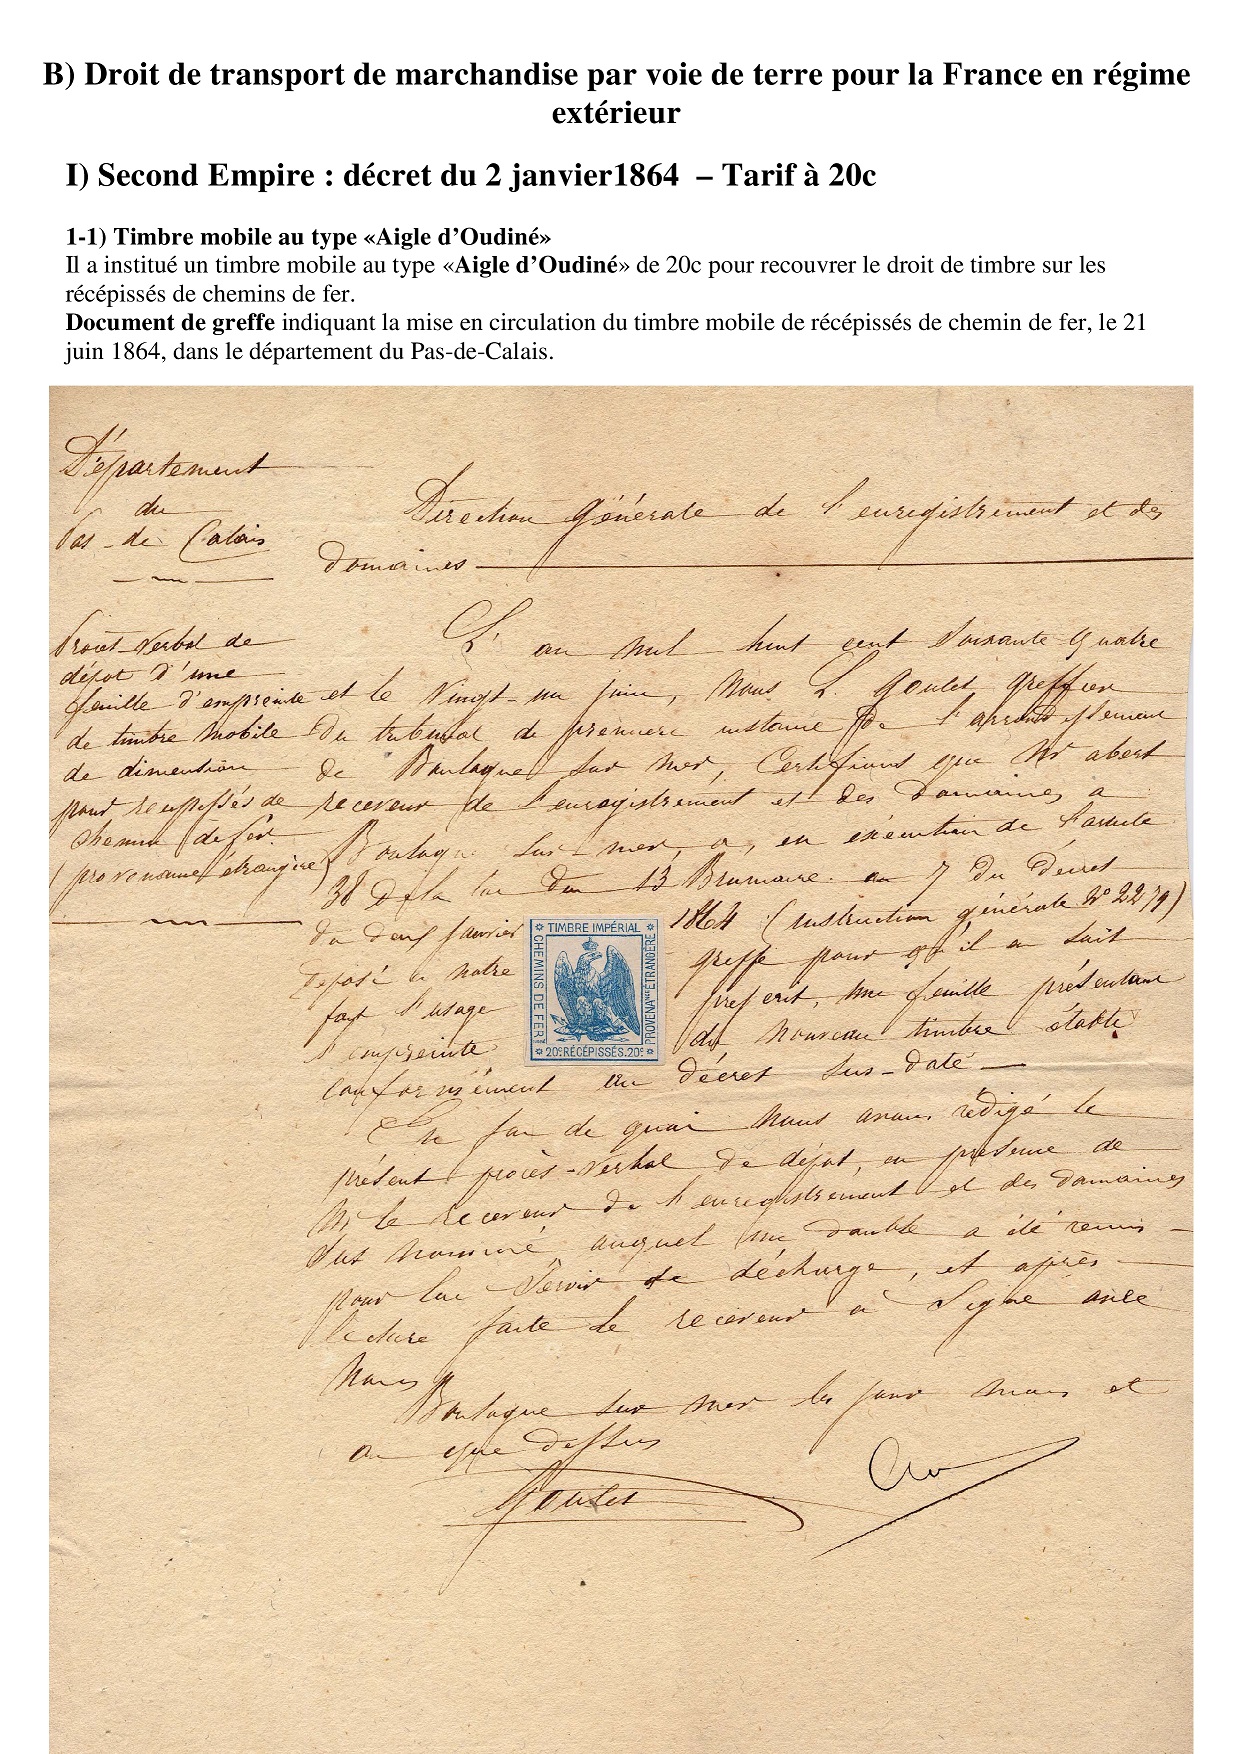 B) Droit de transport de marchandise par voie de terre pour la France en régime
extérieur
I) Second Empire : décret du 2 janvier1864 – Tarif à 20c
1-1) Timbre mobile au type «Aigle d’Oudiné»
Il a institué un timbre mobile au type «Aigle d’Oudiné» de 20c pour recouvrer le droit de timbre sur les
récépissés de chemins de fer.
Document de greffe indiquant la mise en circulation du timbre mobile de récépissés de chemin de fer, le 21
juin 1864, dans le département du Pas-de-Calais.
Département
du
Pas-de-Calais
Procès-Verbal de
dépot d'une
feuille d'empreinte
de timbre mobile
de dimention
pour recepissés de
chemin de fer
(provenance étrangère)
Direction générale de l'enregistrement et des
domaines
L'an mil huit cent Soixante quatre
et le Vingt-un juin, Nous L. Goulet Greffier
du tribunal de premiere instance de l'arrondissement
de Boulogne sur mer, Certifions que Mr abert
receveur de l'enregistrement et des domaines a
Boulogne sur-mer, a, en exécution de l'article
38 De la loi du 13 Brumaire an 7 du Décret
du deux Janvier 1864 (instruction générale No 2279)
déposé a notre greffe pour qu'il en soit
fait l'usage prescrit, une feuille présentant
l'empreinte du nouveau timbre établi
conformément au décret sus-daté
TIMBRE IMPÉRIAL
CHEMINS DE FER
PROVENANCE ÉTRANGÈRE
20c RÉCÉPISSÉS. 20c
En foi de quoi nous avons rédigé le
présent procès-verbal de dépot, en présence de
Mr le receveur de l'enregistrement et des domaines
sus nommé, auquel un double a été remis
pour lui servir de décharge, et après
lecture faite le receveur a signé avec
Nous
Boulogne sur mer les jour mois et
an que dessus
Goulet